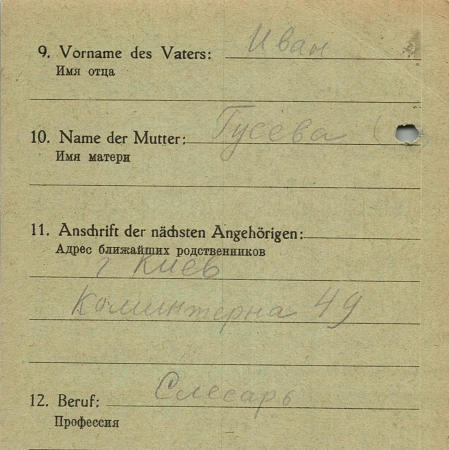 9. Vorname des Vaters: Иван
Имя отца
10. Name der Mutter: Гусева (
Имя матери
11. Anschrift der nächsten Angehörigen:
Адрес ближайших родственников
г Киев
Коминтерна 49
12. Beruf: Слесарь
Профессия